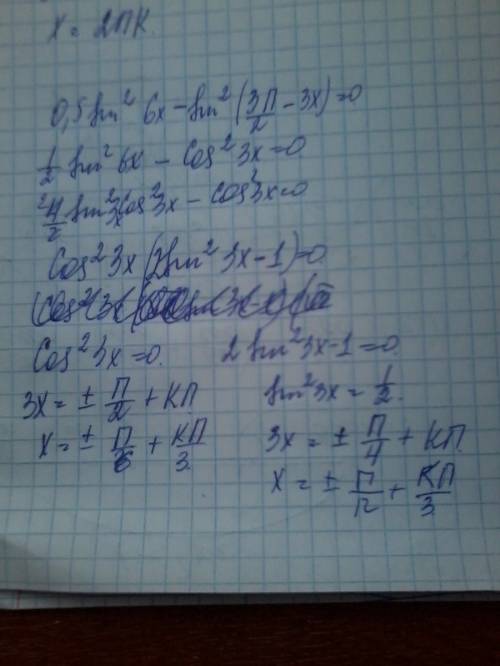 x = 2πk.
0,5 sin² 6x − sin² (3π/2 − 3x) = 0
1/2 sin² 6x − cos² 3x = 0
4/2 sin² 3x cos² 3x − cos² 3x = 0
cos² 3x (2 sin² 3x − 1) = 0
cos² 3x = 0. 2 sin² 3x − 1 = 0
3x = ± π/2 + kπ sin² 3x = 1/2.
x = ± π/6 + kπ/3 3x = ± π/4 + kπ.
x = ± π/12 + kπ/3